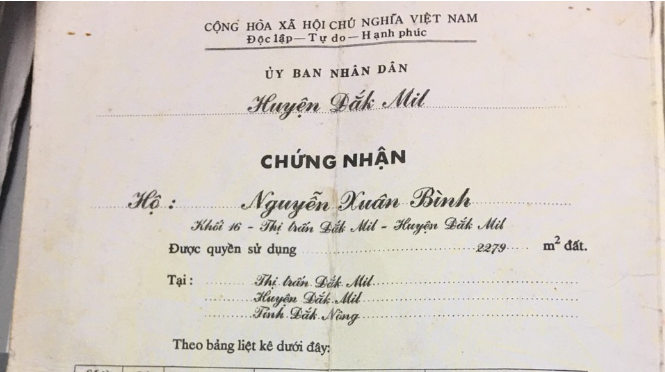 CỘNG HÒA XÃ HỘI CHỦ NGHĨA VIỆT NAM
Độc lập — Tự do — Hạnh phúc
ỦY BAN NHÂN DÂN
Huyện Đắk Mil
CHỨNG NHẬN
Hộ : Nguyễn Xuân Bình
Khối 16 - Thị trấn Đắk Mil - Huyện Đắk Mil
Được quyền sử dụng 2279 m² đất.
Tại : Thị trấn Đắk Mil
Huyện Đắk Mil
Tỉnh Đắk Nông
Theo bảng liệt kê dưới đây: